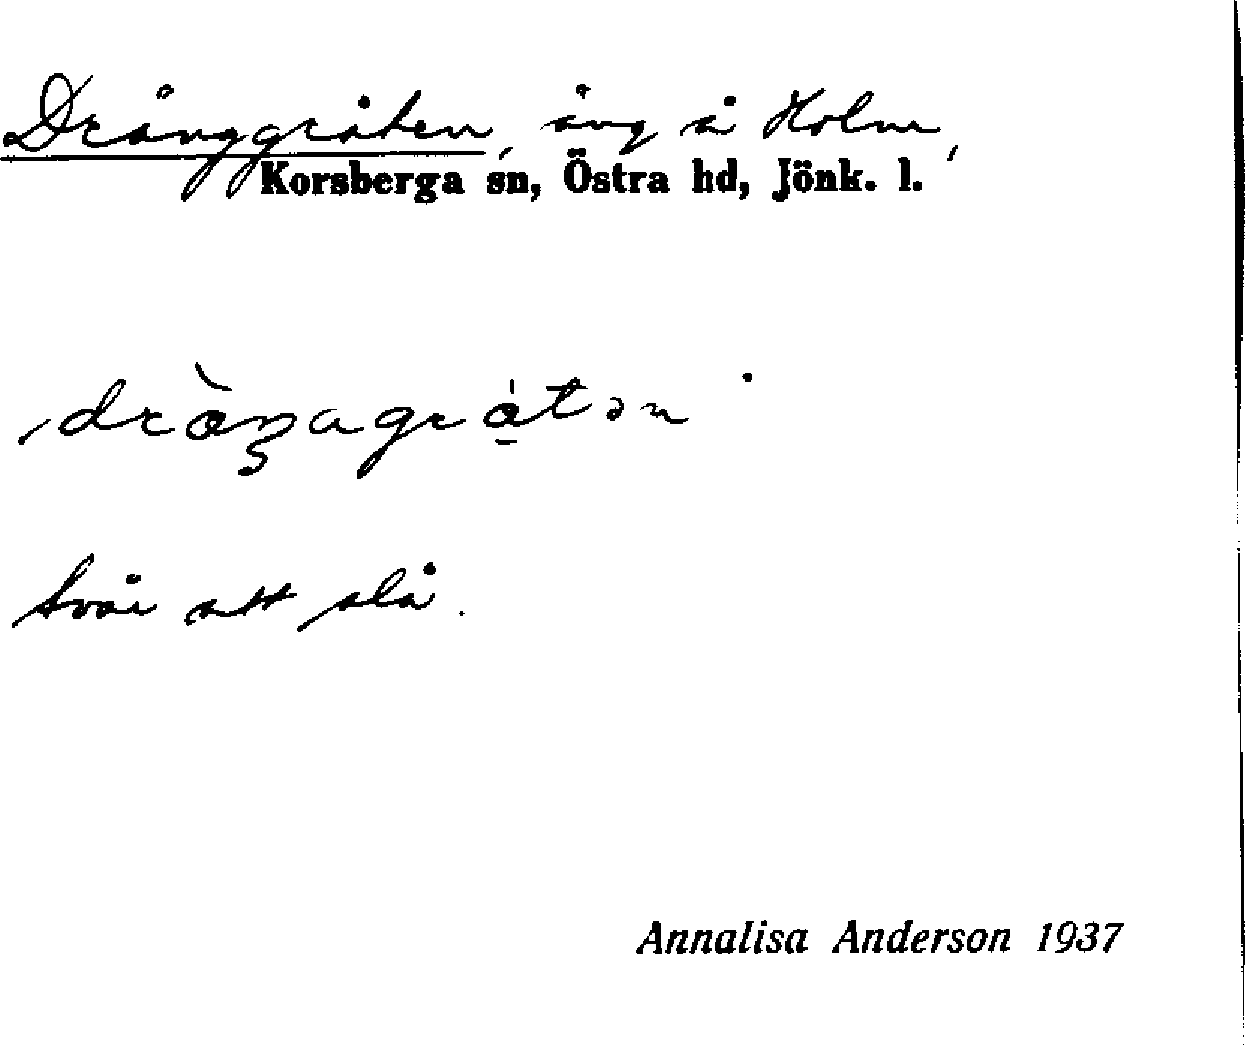 Dränggråten, äng å Holm,
Korsberga sn, Östra hd, Jönk. l.
drὰŋagrátən
svår att slå.
Annalisa Anderson 1937